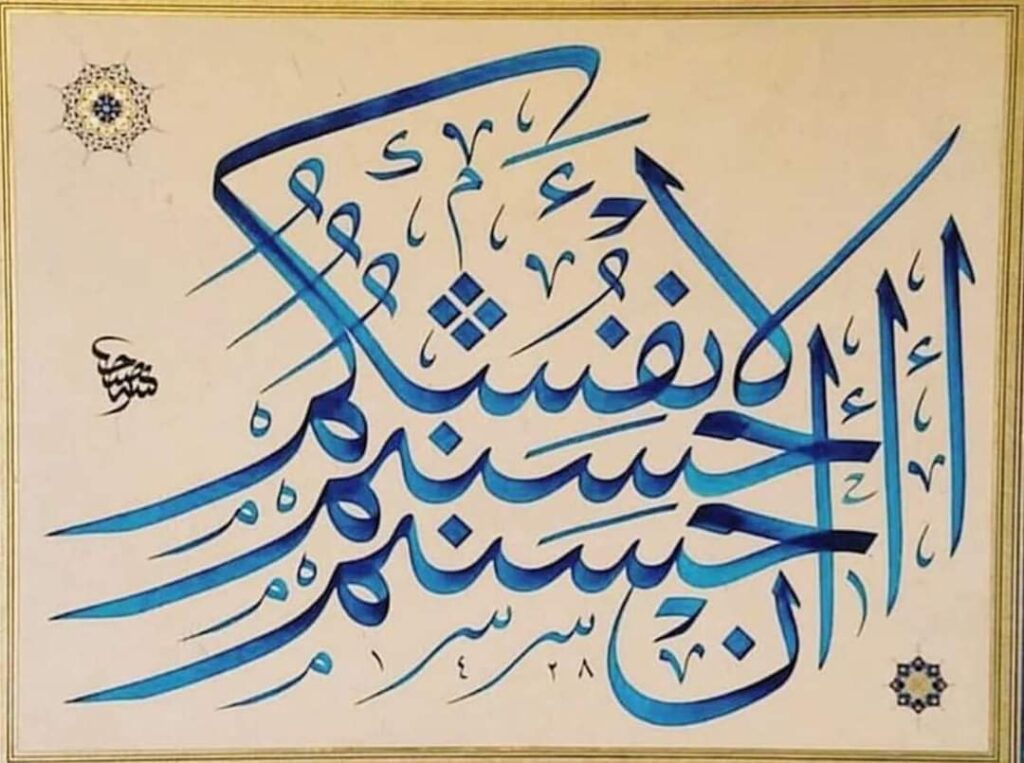 إن أحسنتم
أحسنتم
لأنفسكم
١٤٢٨